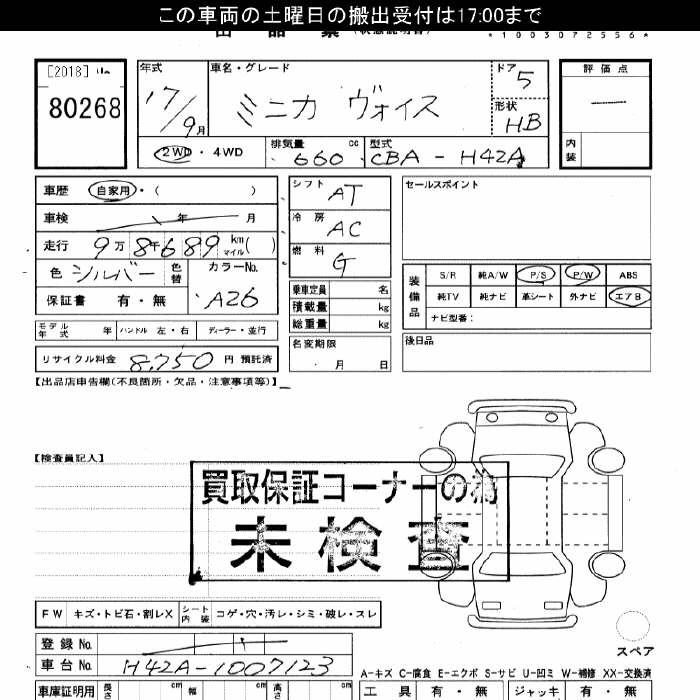 この車両の土曜日の搬出受付は17:00まで
出 品 票 (状態説明書)
*1003072556*
[2018]
80268
年式
17/9月
車名・グレード
ミニカ ヴォイス
ドア 5
形状 HB
2WD・4WD
排気量 660 cc
型式 CBA-H42A
評価点
内装
車歴 自家用・( )
車検 年 月
走行 9万8千689 km マイル( )
色 シルバー 色替
カラーNo. A26
保証書 有・無
モデル年式 年 ハンドル 左・右 ディーラー・並行
リサイクル料金 8,750 円 預託済
シフト AT
冷房 AC
燃料 G
乗車定員 名
積載量 kg
総重量 kg
名変期限
・月 日
セールスポイント
装備品
S/R 純A/W P/S P/W ABS
純TV 純ナビ 革シート 外ナビ エアB
ナビ型番:
後日品
【出品店申告欄(不良箇所・欠品・注意事項等)】
【検査員記入】
買取保証コーナーの為
未検査
FW キズ・トビ石・割レX シート内装 コゲ・穴・汚レ・シミ・破レ・スレ
スペア
登録No.
車台No. H42A-1007123
A-キズ C-腐食 E-エクボ S-サビ U-凹ミ W-補修 XX-交換済
車庫証明用 長さ cm 幅 cm 高さ cm
工具 有・無 ジャッキ 有・無